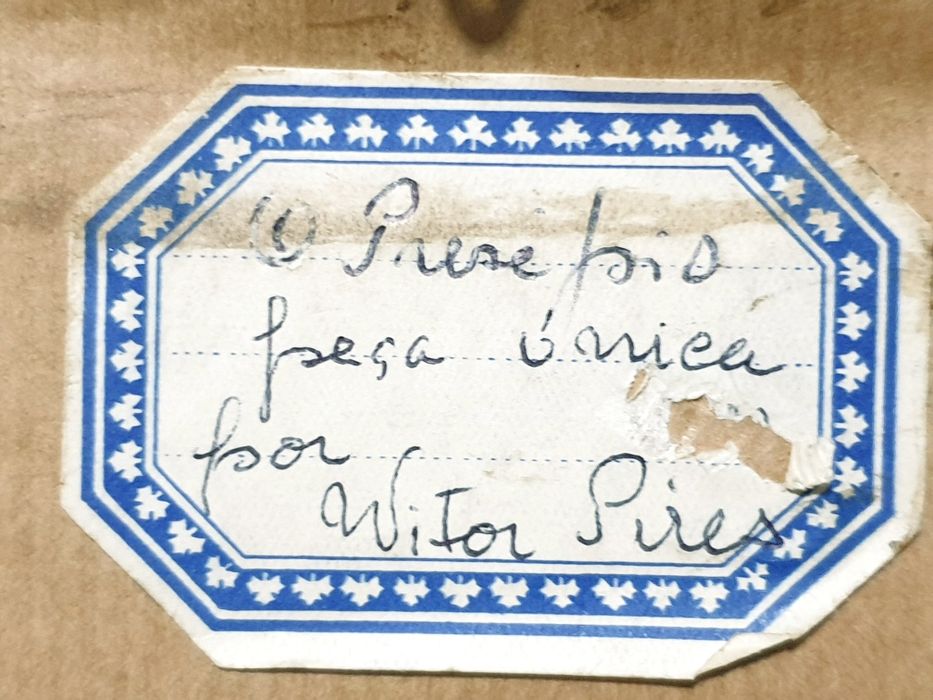 O Presépio
peça única
por
Witor Pires